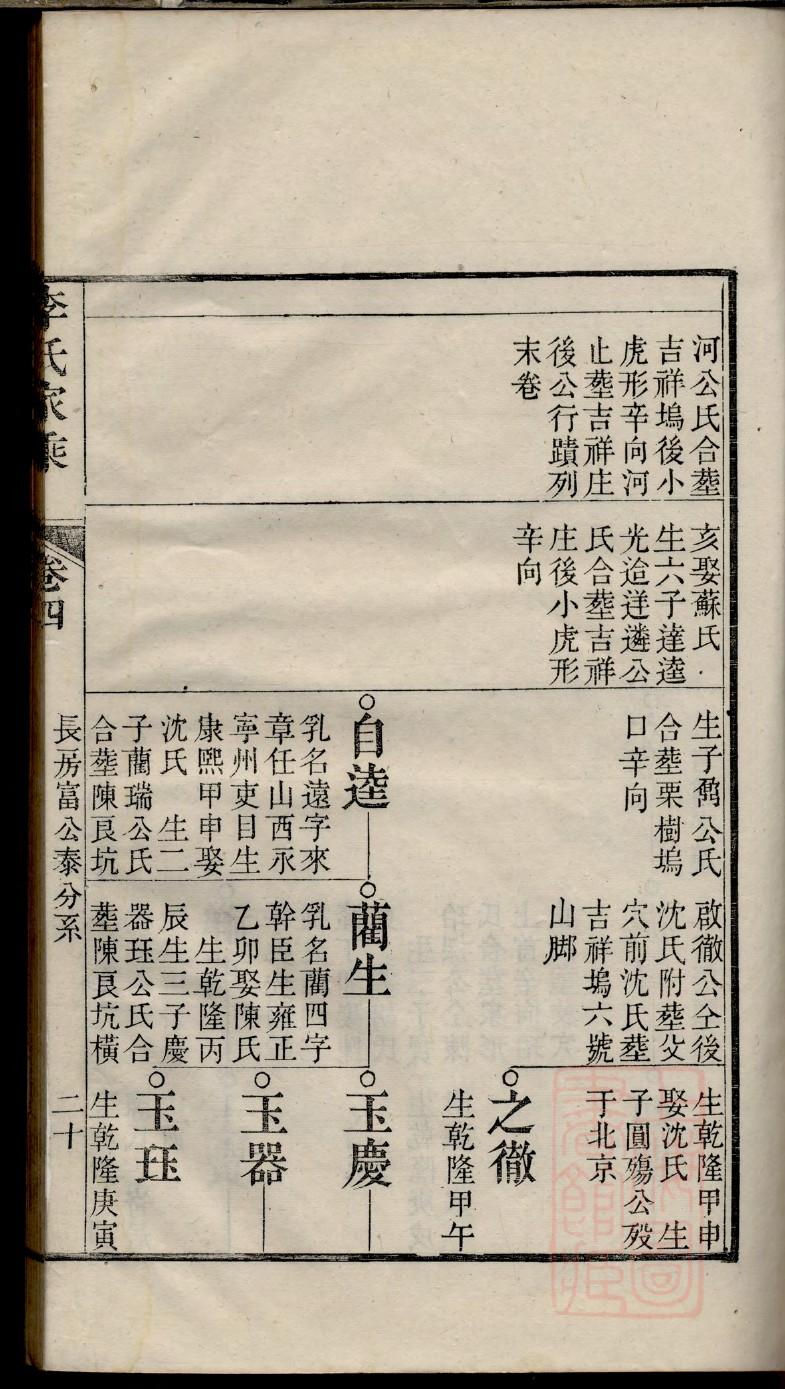 河公氏合塟
吉祥塢後小
虎形辛向河
止塟吉祥庄
後公行蹟列
末卷
亥娶蘇氏
生六子達逵
光迨迸遴公
氏合塟吉祥
庄後小虎形
辛向
生子矞公氏
合塟栗樹塢
口辛向
自逵
乳名遠字來
章任山西永
寧州吏目生
康熙甲申娶
沈氏 生二
子藺瑞公氏
合塟陳良坑
啟徹公仝後
沈氏附塟父
穴前沈氏塟
吉祥塢六號
山脚
藺生
乳名藺四字
幹臣生雍正
乙卯娶陳氏
生乾隆丙
辰生三子慶
器珏公氏合
塟陳良坑橫
生乾隆甲申
娶沈氏 生
子圓殤公歿
于北京
之徹
生乾隆甲午
玉慶
玉器
玉珏
生乾隆庚寅
李氏家乘
卷四
長房富公泰分系
二十